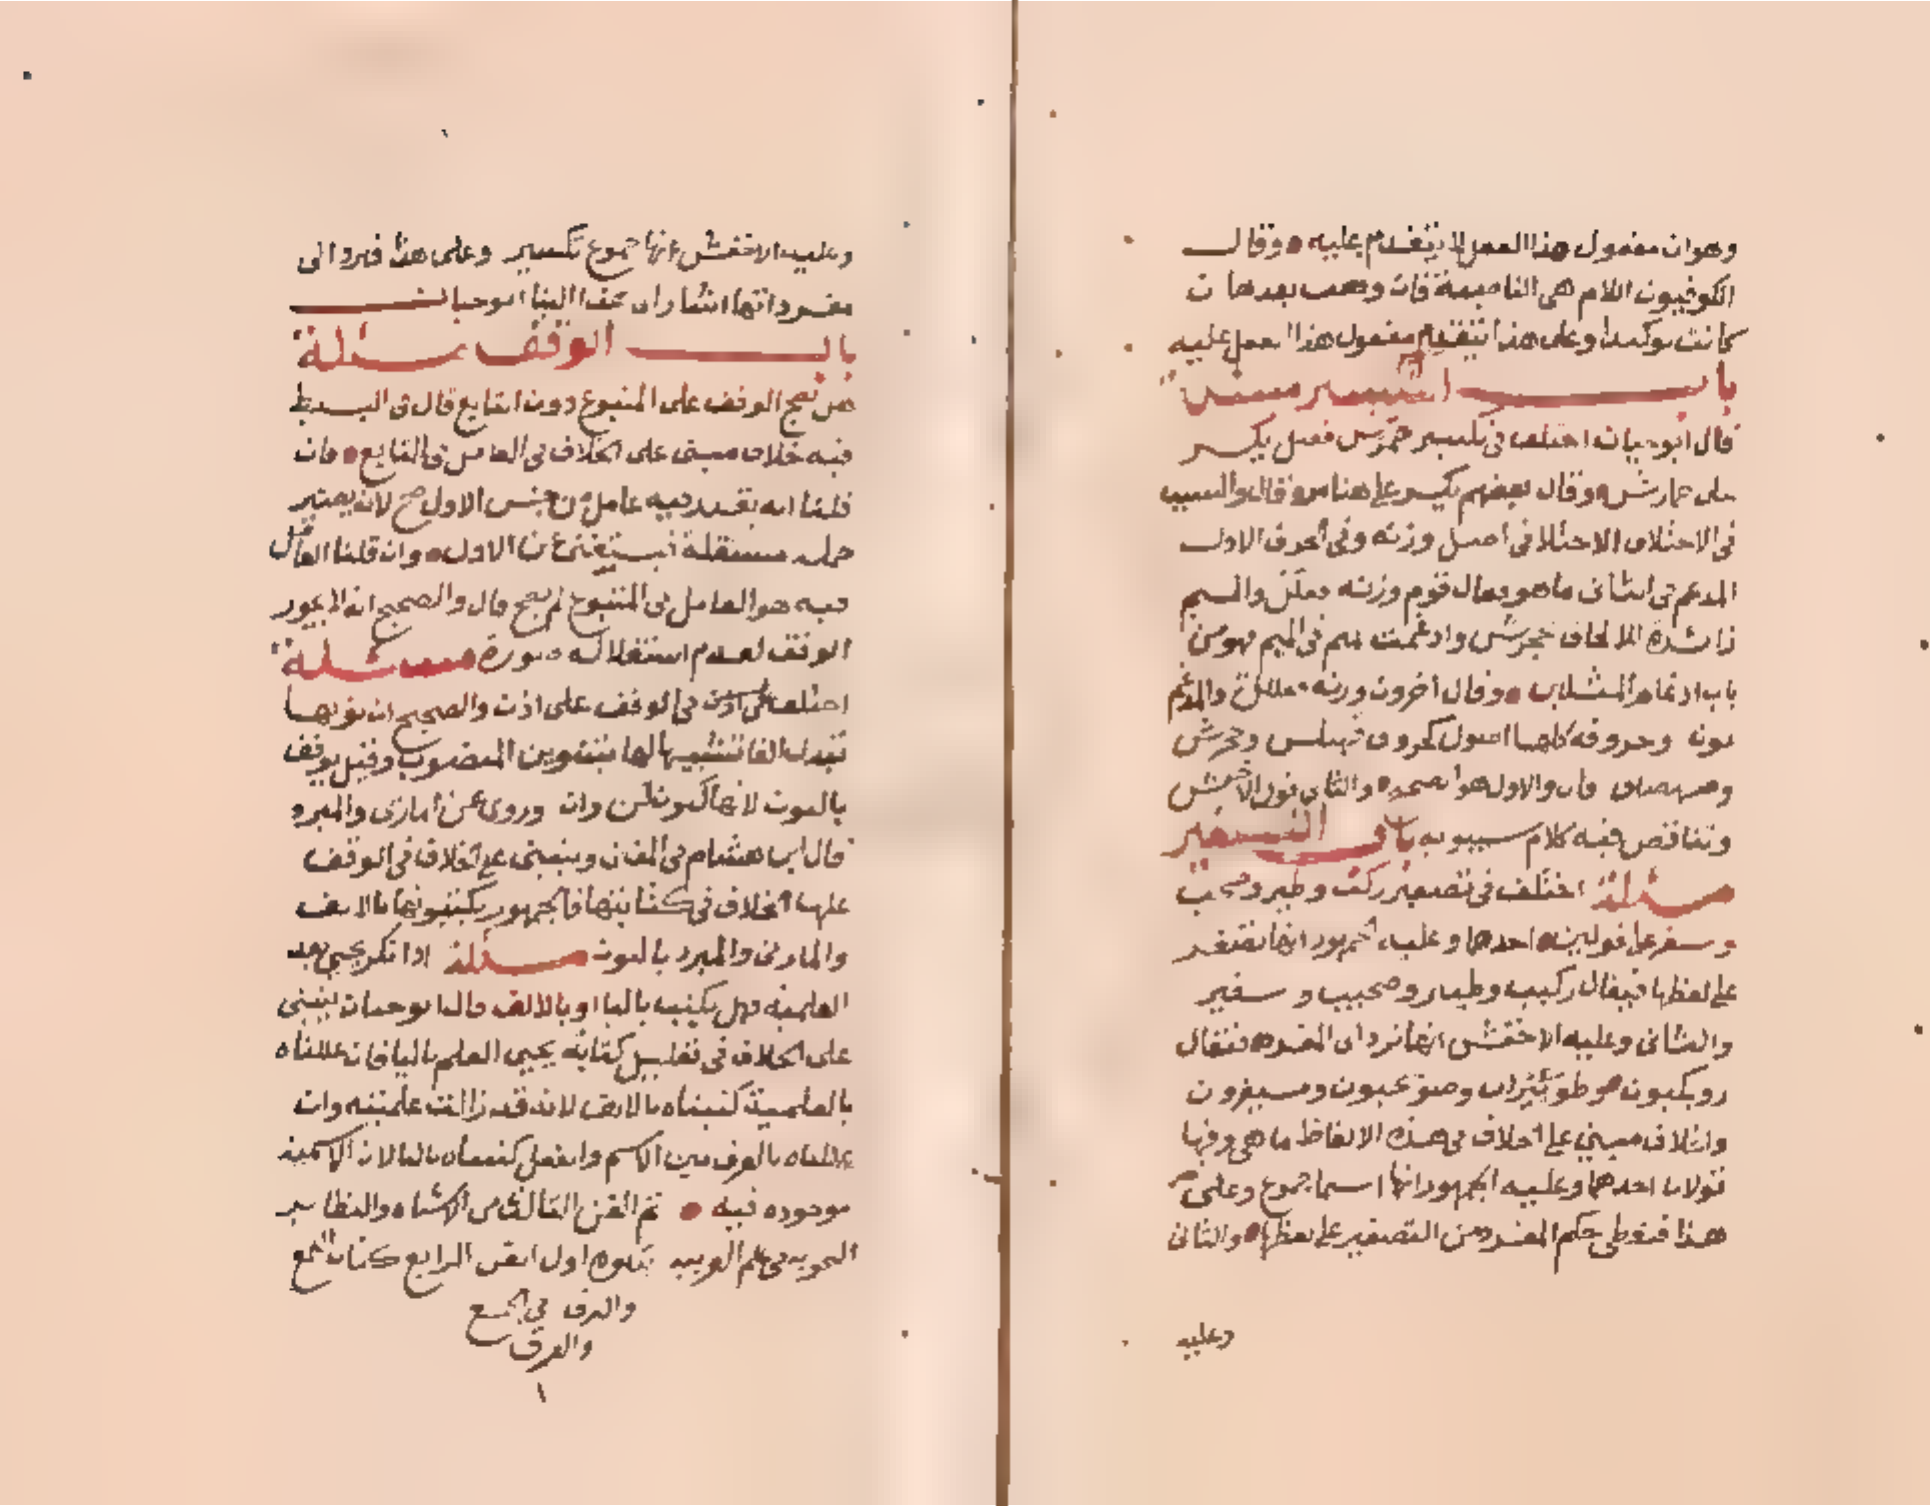 وهو ان معمول هذا الفعل لا يتقدم عليه وقال
الكوفيون اللام هي الناصبة فان وقعت بعدها ان
كانت توكيدا وعلى هذا يتقدم معمول هذا الفعل عليه
باب التكسير مسئلة
قال ابو حيان اختلف في تكسير همرش فقيل يكسر
على همارش وقال بعضهم يكسر على هنامر قال والسبب
في الاختلاف الاختلاف في اصل وزنه وفي الحرف الاول
المدغم في الثاني ما هو فقال قوم وزنه فعلل والميم
زائدة للالحاق بجحمرش وادغمت ميم في الميم فهو من
باب ادغام المثلين وقال آخرون وزنه فعللل والمدغم
نون وحروفه كلها اصول كحروف قهبلس وجحمرش
وصهصلق قال والاول هو الصحيح والثاني قول الاخفش
وتناقض فيه كلام سيبويه باب التصغير
مسئلة اختلف في تصغير ركب وطير وصحب
وسفر على قولين احدهما وعليه الجمهور انها تصغر
على لفظها فيقال ركيب وطيير وصحيب وسفير
والثاني وعليه الاخفش انها ترد الى المفرد فيقال
رويكبون وطويئرات وصويحبون ومسيفرون
والخلاف مبني على الخلاف في هذه الالفاظ ما هي وفيها
قولان احدهما وعليه الجمهور انها اسما جموع وعلى
هذا فتعطى حكم المفرد من التصغير على لفظها والثاني
وعليه
وعليه الاخفش انها جموع تكسير وعلى هذا فترد الى
مفرداتها اشار الى هذا البنا ابو حيان
باب الوقف مسئلة
هل يصح الوقف على المتبوع دون التابع قال في البسيط
فيه خلاف مبني على الخلاف في العامل في التابع فان
قلنا انه يقدر فيه عامل من جنس الاول صح لانه يصير
جملة مستقلة تستغني عن الاول وان قلنا العامل
فيه هو العامل في المتبوع لم يصح قال والصحيح انه لا يجوز
الوقف لعدم استقلاله صورة مسئلة
اختلف في الوقف على اذن والصحيح ان نونها
تبدل الفا تشبيها لها بتنوين المنصوب وقيل يوقف
بالنون لانها كنون لن وان وروي عن المازني والمبرد
قال ابن هشام في المغني وينبني على الخلاف في الوقف
عليها الخلاف في كتابتها فالجمهور يكتبونها بالالف
والمازني والمبرد بالنون مسئلة اذا نكر يحيى بعد
العلمية فهل يكتب باليا او بالالف قال ابو حيان ينبني
على الخلاف في تعليل كتابة يحيى العلم باليا فان عللناه
بالعلمية كتبناه بالالف لانه قد زالت علميته وان
عللناه بالفرق بين الاسم والفعل كتبناه باليا لان الاسمية
موجودة فيه تم الفن الثالث من الاشباه والنظاير
النحوية في علم العربية يتلوه اول الفن الرابع كتاب الجمع
والفرق في الجمع
والفرق
١